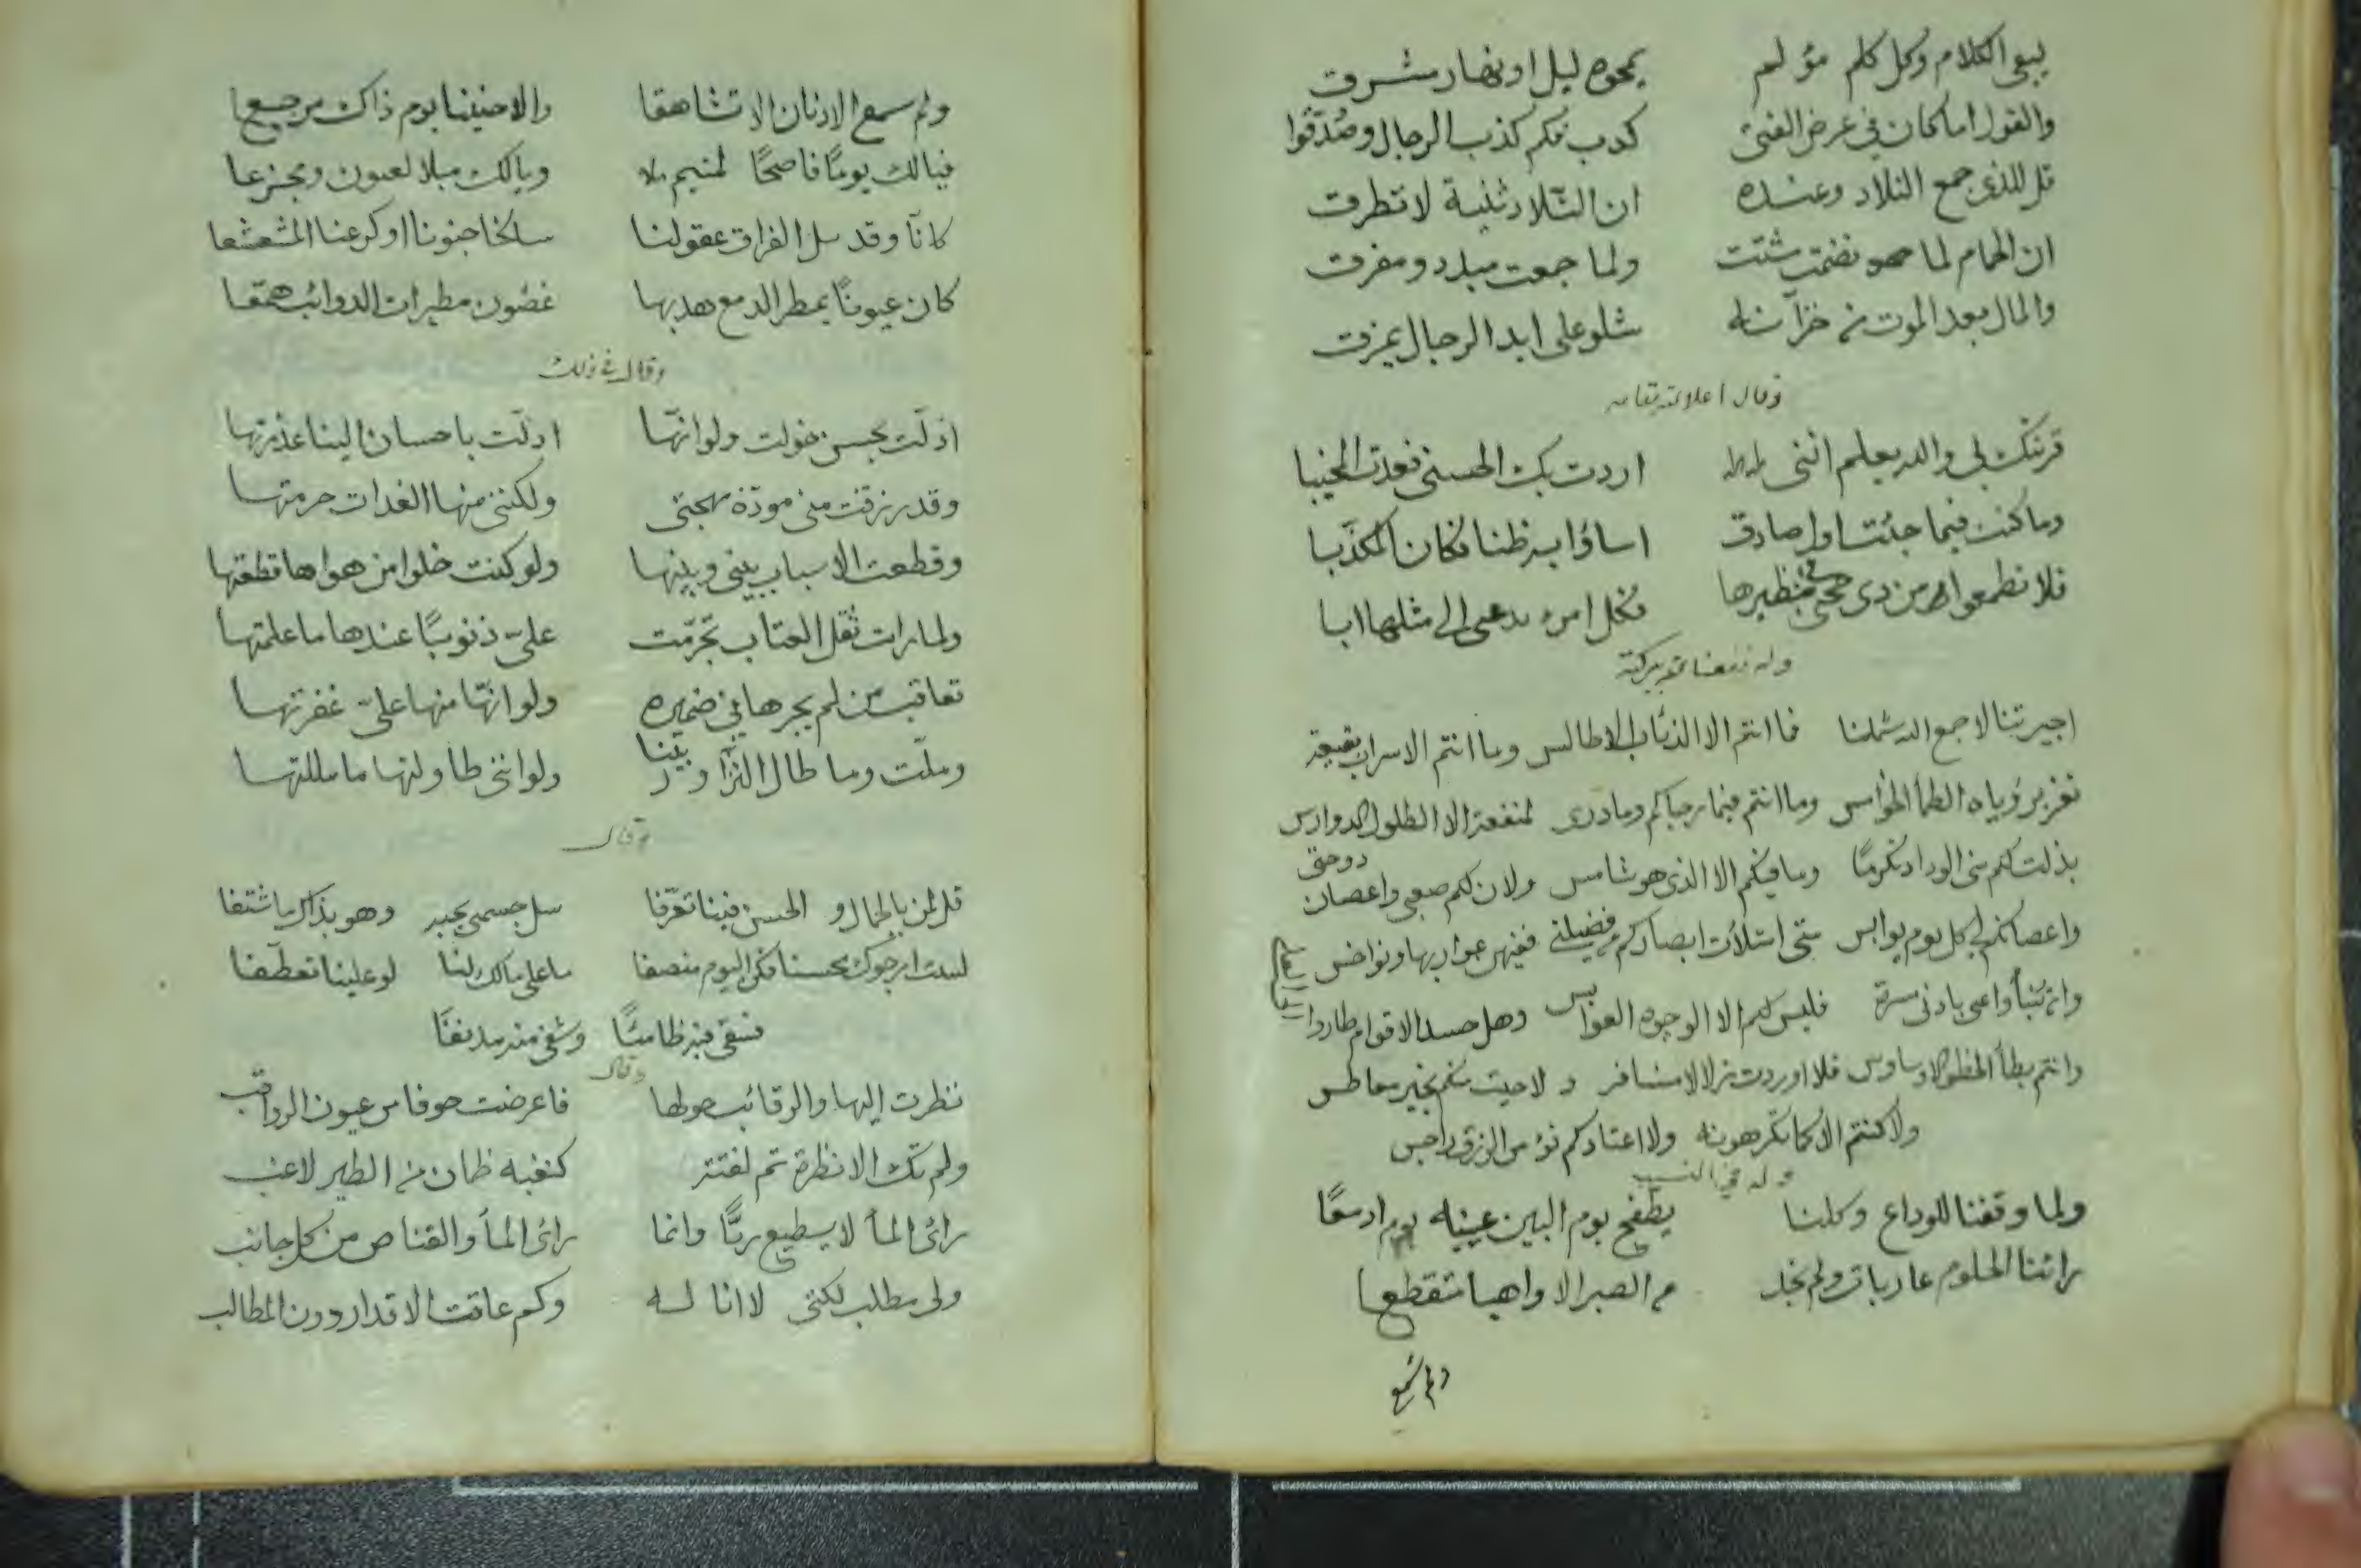 يبقى الكلام وكل كلم مؤلم يمحوه ليل او نهار مشرق
والقول اما كان في عرض الفتى كذب فكم كذب الرجال وصدقوا
قل للذي جمع التلاد وعنده ان التلاد ثنية لا تطرق
ان الحمام لما تضمت شتت ولما جمعت مبلد ومفرق
والمال بعد الموت من خزانه شلو على ايد الرجال يمزق
وقال اعلا الله مقامه
قربتك لي والله يعلم انني اردت بك الحسنى فعدت المخيبا
وما كنت فيما جئت اول صادق اساؤا به ظنا فكان المكذبا
فلا تطمعوا من ذي حجى بنظيرها فكل امرء يدعى الى مثلها ابا
وله نفعنا الله ببركته
اجيرتنا لا جمع الله شملنا فما انتم الا الذئاب الاطالس وما انتم الا سراب بقيعة
تغر برؤياه الظماء الخوامس وما انتم فيما رجاكم وما درى لمنفعة الا الطلول الدوارس
بذلت لكم منى الوداد تكرما وما فيكم الا الذي هو شامس ولان لكم صعبى واغصان دوحتى
واغصانكم لي كل يوم يوابس متى امتلأت ابصاركم من فضيلتي ففيهن عوار بها ونواخس
فليس لكم الا الوجوه العوابس وهل حسد الاقوام طاروا
وانتم بطأ الخطو فلا اوردت نزلا لا مسافر ولا حييت منكم بخير معاطس
ولا كنتم الا كما تكرهونه ولا اعتادكم نوء من الرزق راجس
وله في النسيب
ولما وقفنا للوداع وكلنا يطفح يوم البين عينيه ادمعا
رأتنا الحلوم عاريات ولم نجد من الصبر الا واهيا متقطعا
ولم تسمع
ولم تسمع الاذنان الا تشاهقا والا حنينا يوم ذاك مرجعا
فيالك يوما فاضحا لمتيم ويالك مبلا لعيون ومجزعا
كانا وقد سل الفراق عقولنا سلخنا جنوبنا او كرعنا المشعشعا
كان عيونا يمطر الدمع هدبها غصون مطيرات الذوائب همعا
وقال في ذلك
ادلت بحسن خولت ولو انها ادلت باحسان الينا عذرتها
وقد رزقت منى مودة مهجتى ولكننى منها الغدات حرمتها
وقطعت الاسباب بينى وبينها ولو كنت خلوا من هواها قطعتها
ولما رات ثقل العتاب تجرمت على ذنوبا عندها ما علمتها
تعاقب من لم يجرها في ضميره ولو انها منها على غفرتها
وملت وما طال التزاور بيننا ولو اننى طاولتها ما مللتها
وقال
قل لمن بالجمال و الحسن فينا تعرفا سل جسمى بحبه وهو بذاك ما اشتفا
لست ارجوك محسنا فكن اليوم منصفا ما على مالك لنا لو علينا تعطفا
فسقى فيه ظامئا وشفى منه مدنفا
وقال
نظرت اليها والرقائب حولها فاعرضت خوفا من عيون الرواقب
ولم تك الا نظرة ثم لفتة كنغبه ظمان من الطير لاغب
رأى الماء لا يسطيع ريا وانما رأى الماء والقناص من كل جانب
ولى مطلب لكنى لا انا له وكم عاقت الاقدار دون المطالب